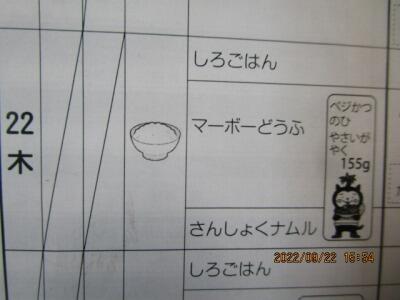 しろごはん
22
木
マーボーどうふ
ベジかつ
のひ
やさいが
やく
155g
さんしょくナムル
しろごはん
2022/09/22 15:54